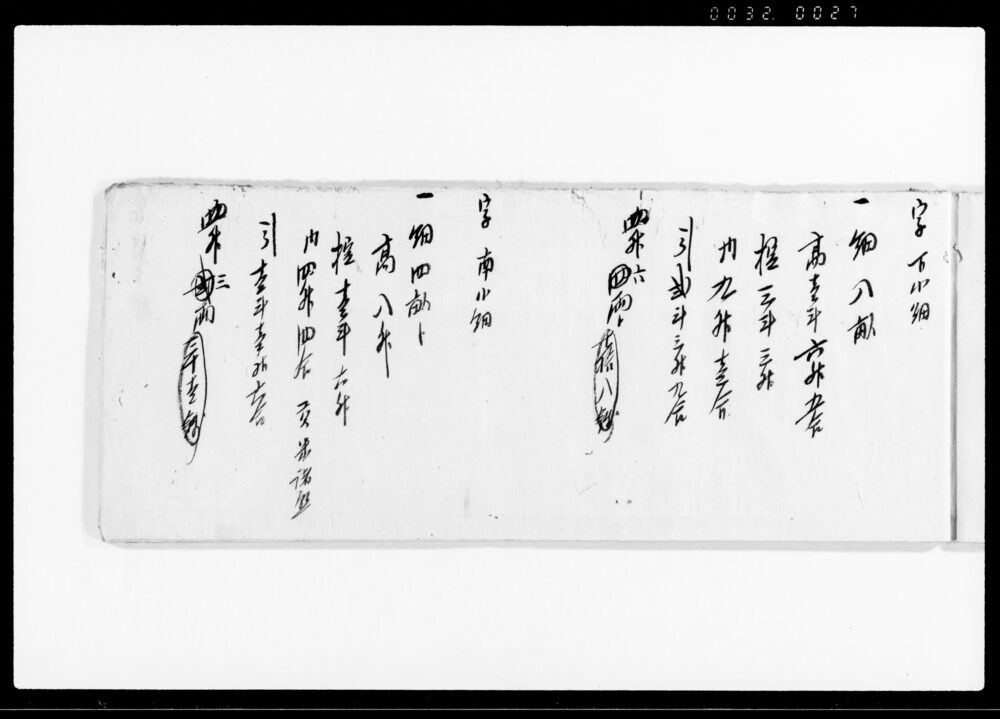 0032 0027
字 下小畑
一 畑 八畝
高壱斗六升九合
掟 三斗三升
内 九升壱合
引 弐斗三升九合
六
四両
八匁
字 南小畑
一 畑 四畝
高 八升
掟 壱斗六升
内 四升四合 貢米諸懸
引 壱斗壱升六合
三
両
三十壱匁